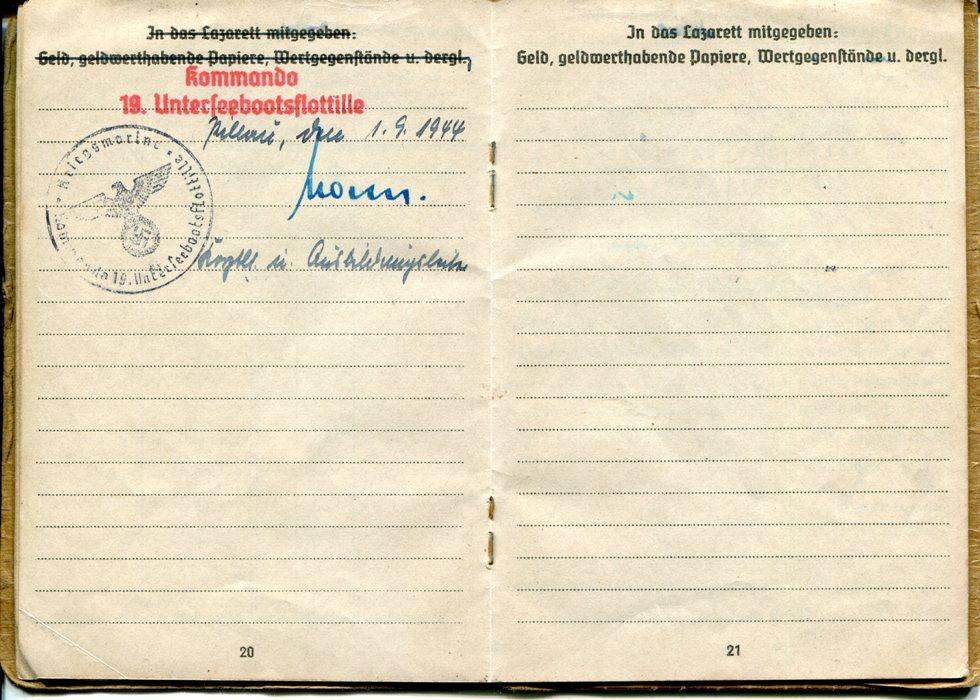 In das Lazarett mitgegeben:
Geld, geldwerthabende Papiere, Wertgegenstände u. dergl.
Kommando
19. Unterseebootsflottille
Pillau, den 1. 9. 1944
Kriegsmarine
Kommando 19. Unterseebootsflottille
u. Ausbildungsleiter
20
In das Lazarett mitgegeben:
Geld, geldwerthabende Papiere, Wertgegenstände u. dergl.
21